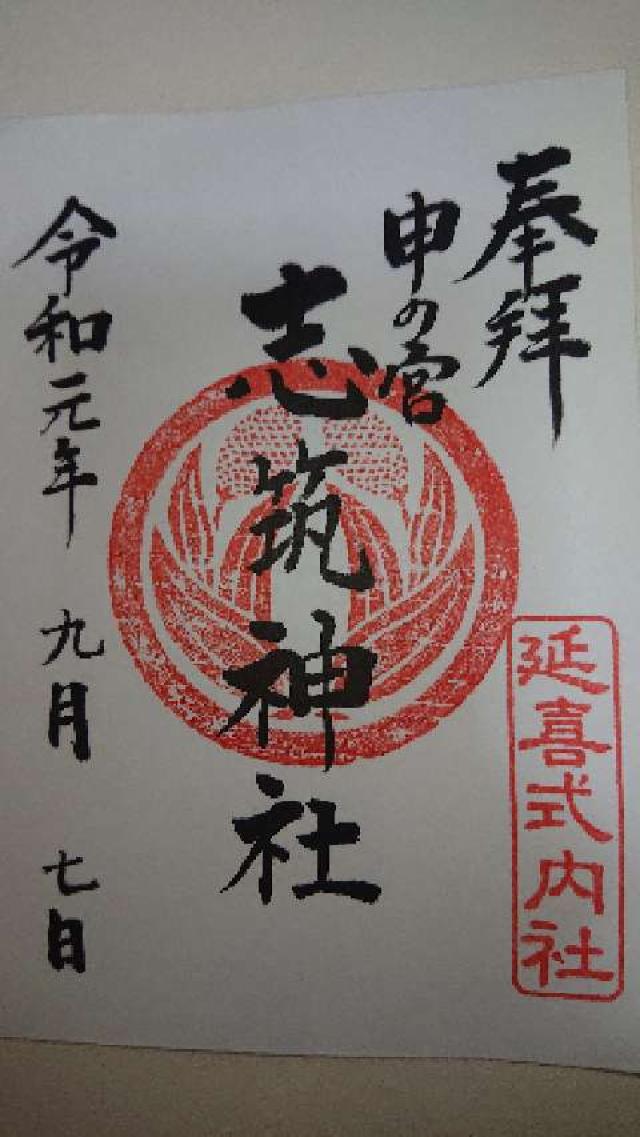 奉拝
申の宮
志筑神社
令和元年 九月 七日
延喜式内社